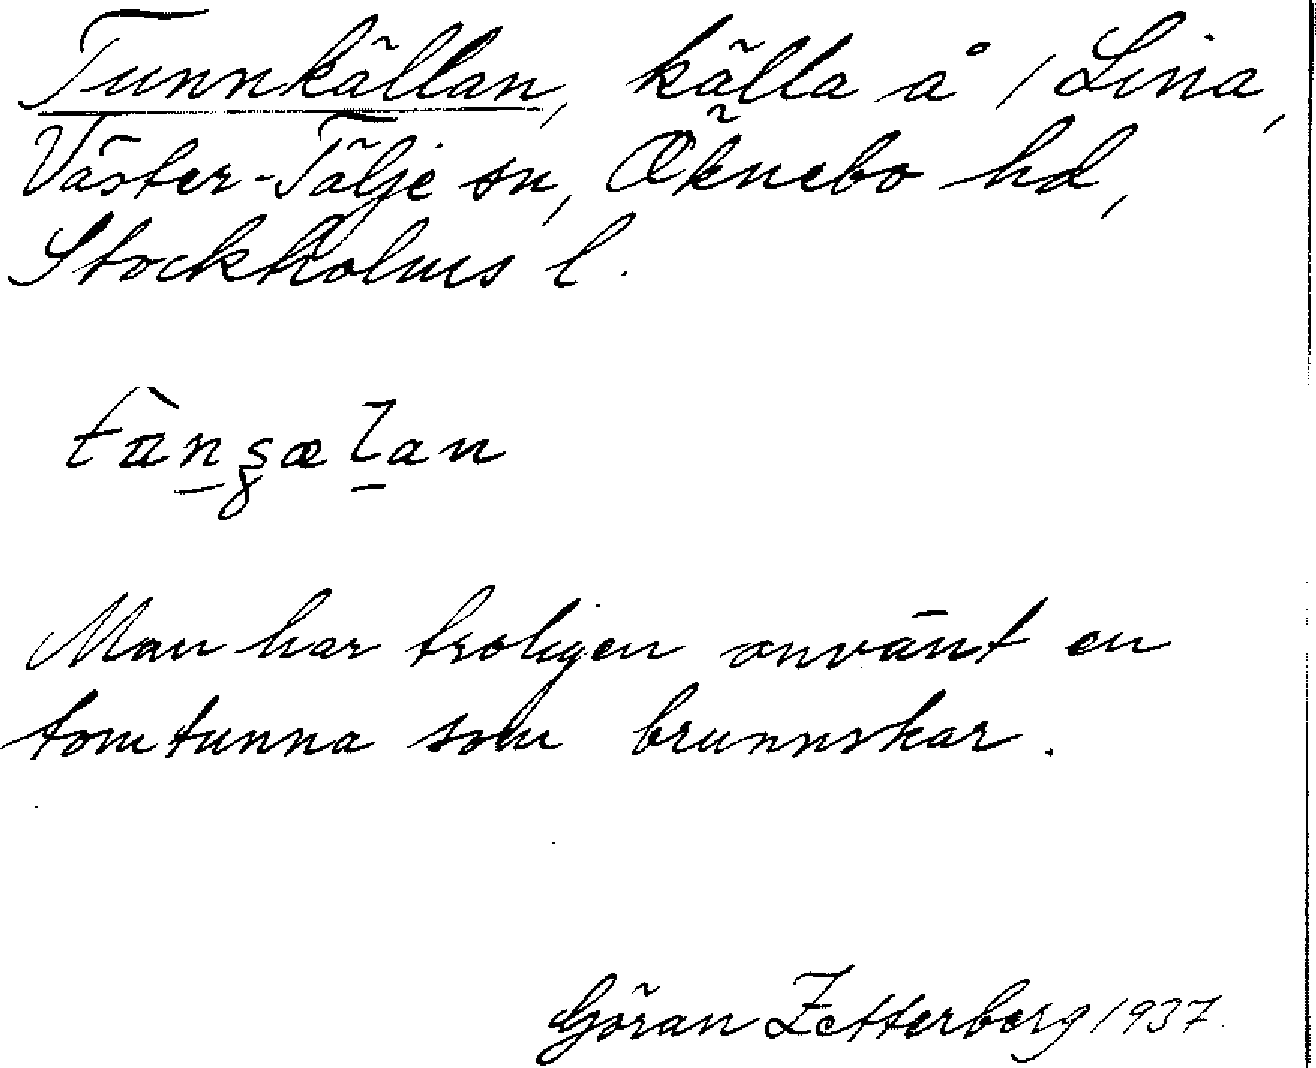 Tunnkällan, källa å /Lina,
Väster-Tälje sn, Öknebo hd,
Stockholms l.
Man har troligen använt en
tom tunna som brunnskar.
Göran Zetterberg 1937.